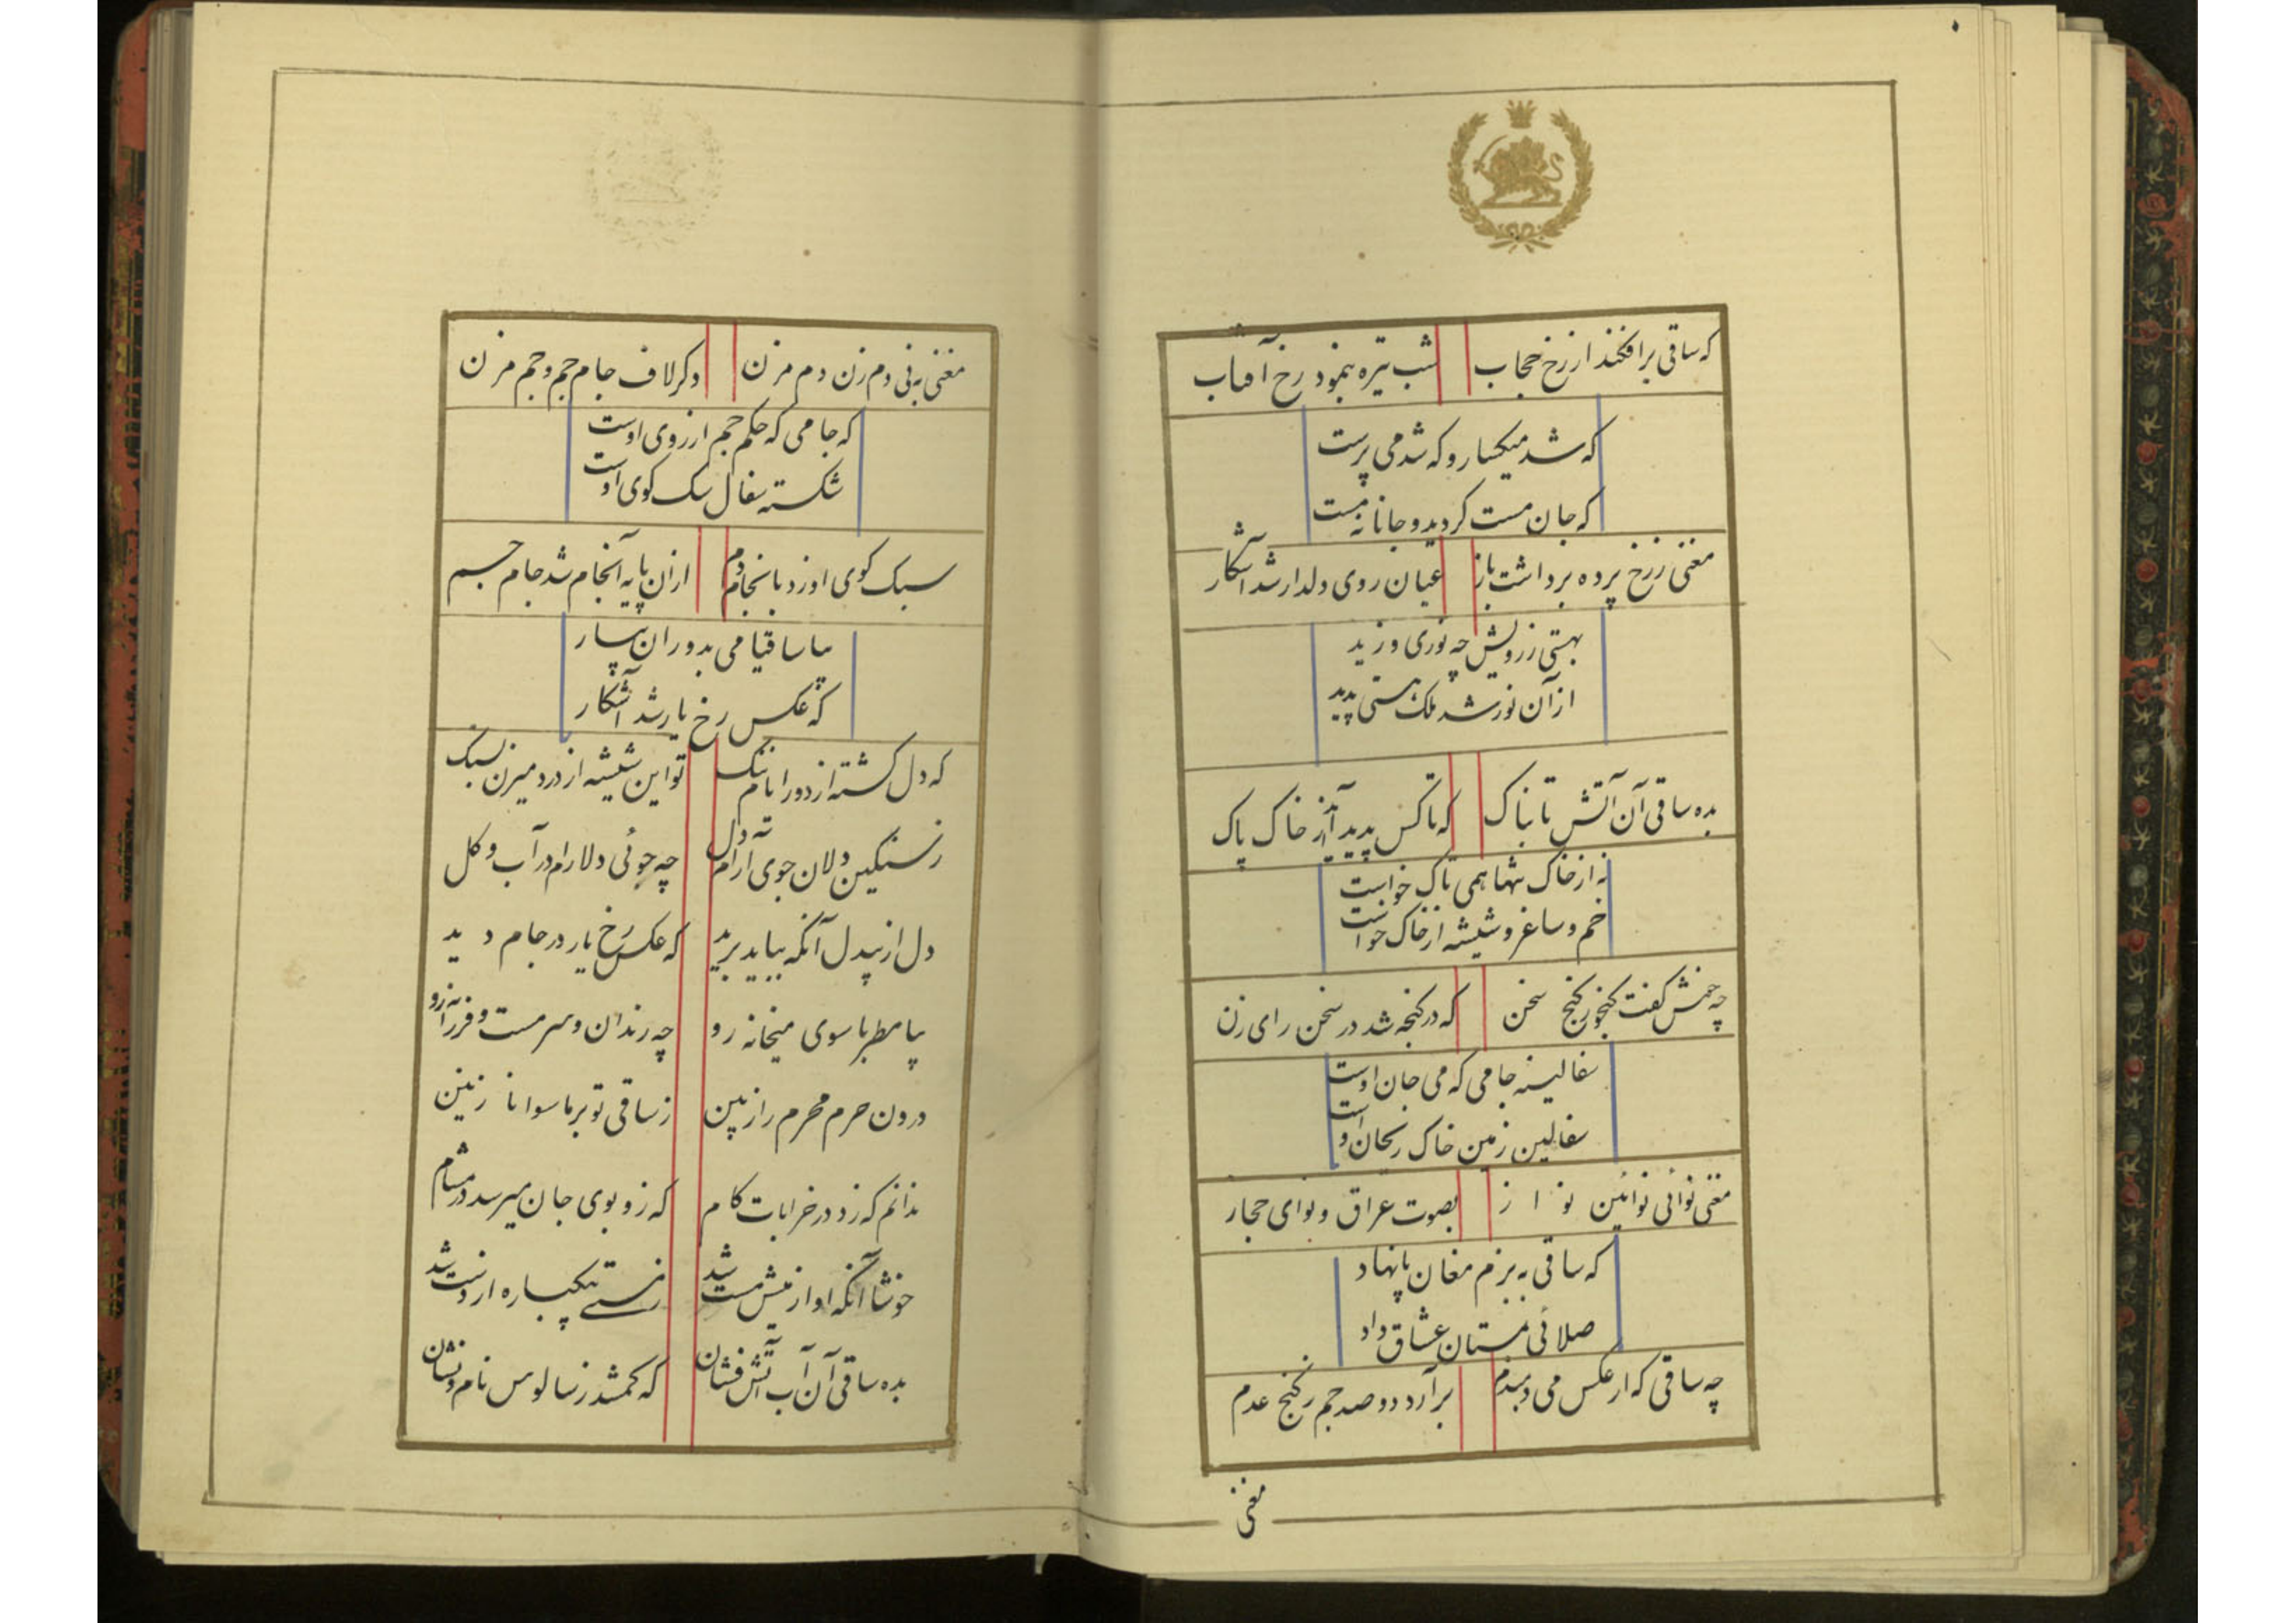 که ساقی برافکند از رخ حجاب شب تیره بنمود رخ آفتاب
که شد میکسار و که شد می پرست
که جان مست کردید و جانانه مست
مغنی ز رخ پرده برداشت باز عیان روی دلدار شد آشکار
بهستی ز رویش چه نوری وزید
از آن نور شد ملک هستی پدید
بده ساقی آن آتش تابناک که تاکش پدید آید از خاک پاک
نه از خاک تنها همی تاک خواست
خم و ساغر و شیشه از خاک خواست
چه خوش گفت گنجور گنج سخن که در گنجه شد در سخن رای زن
سفالینه جامی که می جان اوست
سفالین زمین خاک ریحان اوست
مغنی نوائی نوائین نواز بصوت عراق و نوای حجاز
که ساقی به بزم مغان پا نهاد
صلائی بمستان عشاق داد
چه ساقی که از عکس می دمبدم برآرد دو صد جم ز کنج عدم
مغنی
مغنی به نی دم زن دم مزن دکر لاف جام جم و جم مزن
که جامی که حکم جم از روی اوست
شکسته سفال سک کوی اوست
سبک کوی او زد بانجام دم از آن پایه انجام شد جام جم
بیا ساقیا می بدوران بیار
که عکس رخ یار شد آشکار
که دل کشته از دور ایام تنک تو این شیشه از درد میزن بسنک
ز سنکین دلان جوی آرام دل چه جوئی دلارام در آب و کل
دل از بیدل آنکه بباید برید که عکس رخ یار در جام دید
بیا مطربا سوی میخانه رو چه رندان و سرمست و فرزانه رو
درون حرم محرم راز بین ز ساقی تو بر ماسوا ناز بین
ندانم که زد در خرابات کام که زو بوی جان میرسد در مشام
خوشا آنکه او از میش مست شد ز هستی بیکباره از دست شد
بده ساقی آن آب آتش فشان که کم شد ز سالوس نام و نشان